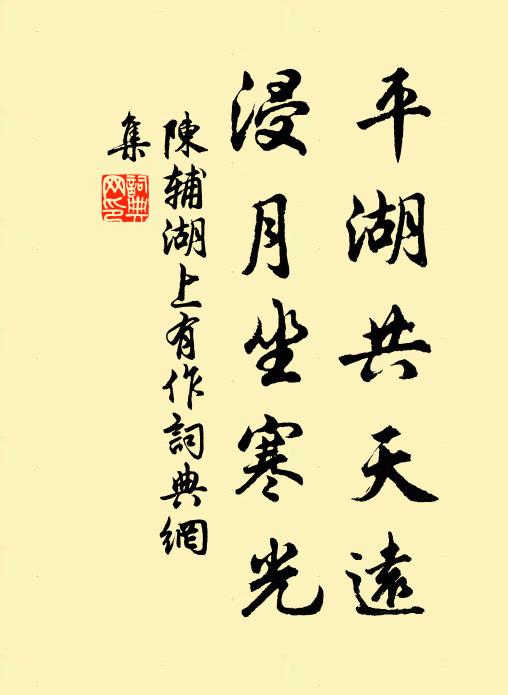 平湖共天遠
浸月坐寒光
陳輔湖上有作詞典網
集
詞典
网印